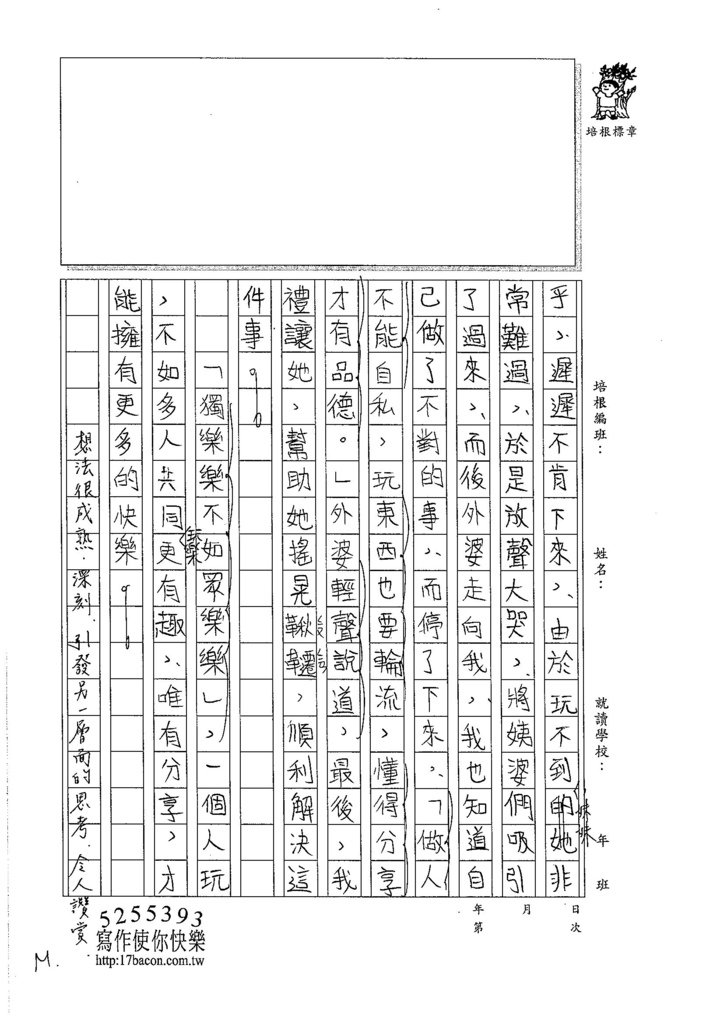 培根標章
培根編班：
姓名：
就讀學校：
年
班
乎,遲遲不肯下來,由於玩不到的她非
妹妹
常難過,於是放聲大哭,將姨婆們吸引
了過來,而後外婆走向我,我也知道自
己做了不對的事,而停了下來,「做人
不能自私,玩東西也要輪流,懂得分享
才有品德。」外婆輕聲說道,最後,我
禮讓她,幫助她搖晃鞦韆,順利解決這
件事。
「獨樂樂不如眾樂樂」,一個人玩
,不如多人共同更有趣,唯有分享,才
樂
能擁有更多的快樂。
想法很成熟.深刻.引發另一層面的思考.令人讚賞
M.
年
月
日
第
次
5255393
寫作使你快樂
http:17bacon.com.tw